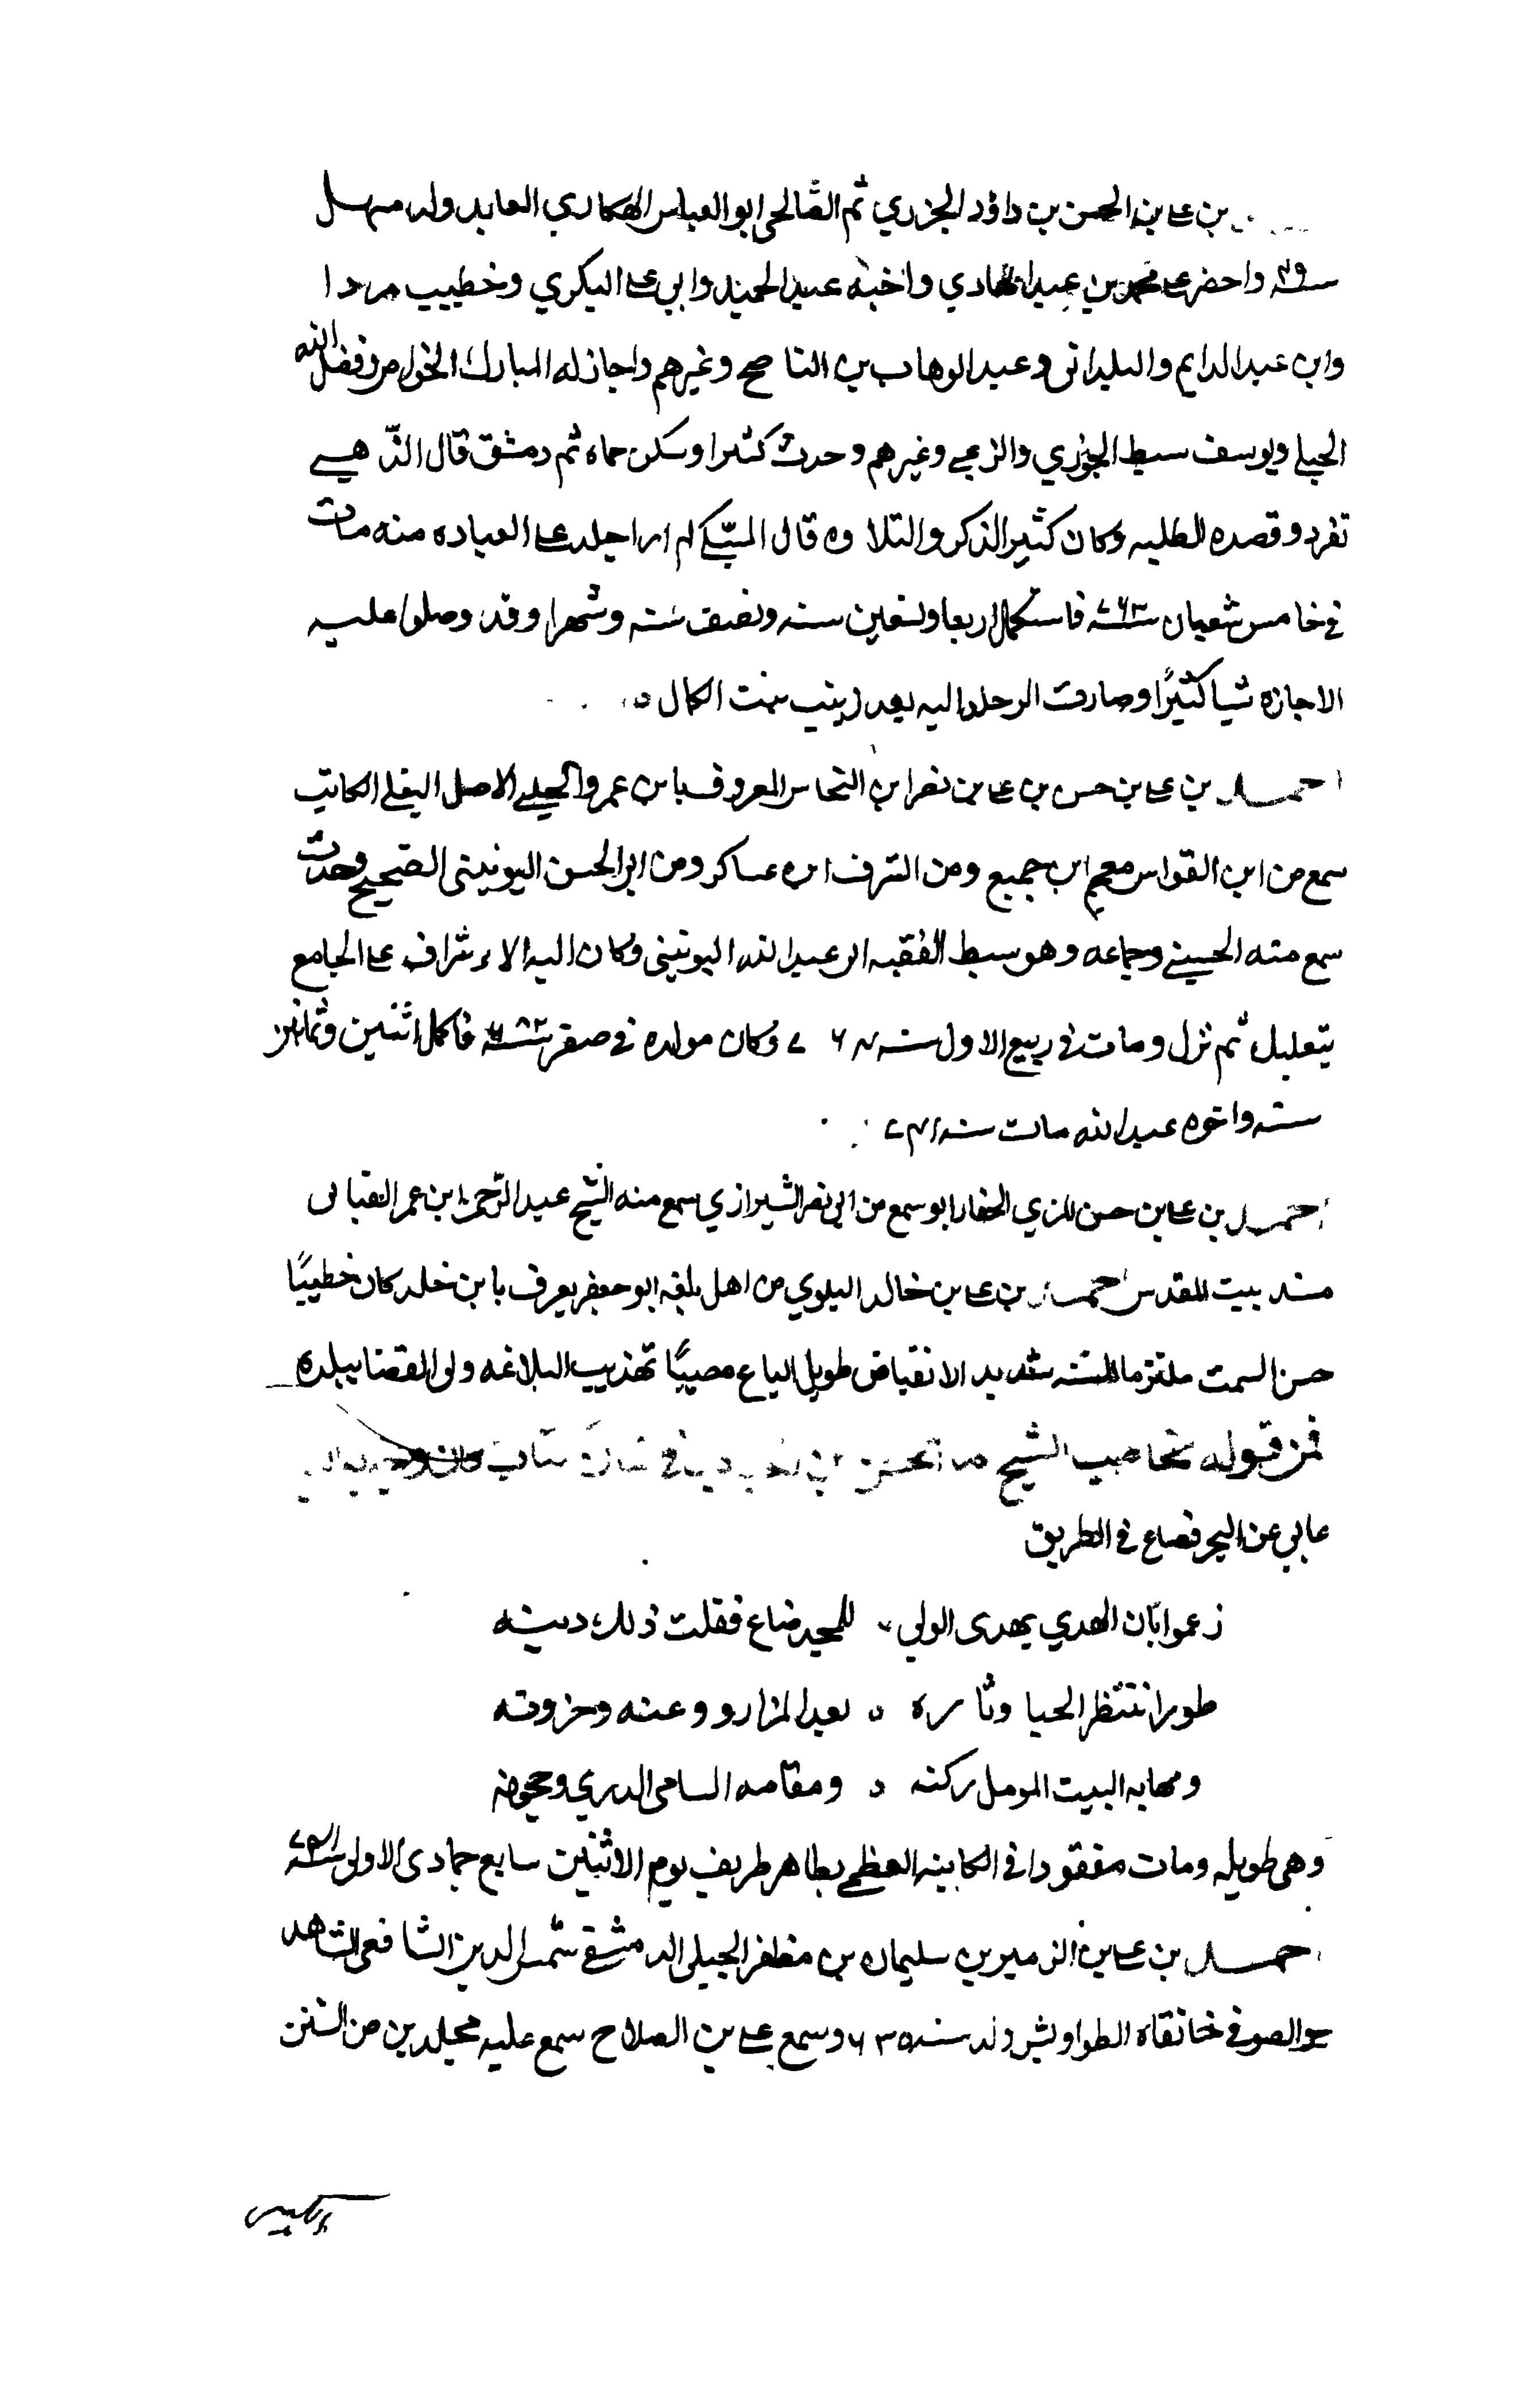 بن على بن الحسن بن داؤد الجزري ثم الصالحى ابو العباس الهكاري العابد ولد
واحضر على محمد بن عبد الهادي واخيه عبد الحميد وابي على البكري وخطيب مردا
وابن عبد الدايم والبلدانى وعبد الوهاب بن الناصح وغيرهم واجاز له المبارك الخواص وفضل الله
الجيلى ويوسف سبط الجوزي والزعبى وغيرهم وحدث كثيرا وسكن حماه ثم دمشق قال الذهبى
تفرد وقصده الطلبه وكان كثير الذكر والتلاوه قال السبكى لم ار اجلد على العباده منه مات
فى خامس شعبان سنة ٧٤٣ فاستكمل اربعا وتسعين سنه ونصف سنه وشهرا وقد وصلوا عليه
الاجازه شيا كثيرًا وصارت الرحله اليه بعد زينب بنت الكمال
احمد بن على بن حسن بن على بن نصر ابن النحاس المعروف بابن عمرو الاصل البعلى الكاتب
سمع من ابن القواس معجم ابن جميع ومن الشرف ابن عساكر ومن ابى الحسن اليونينى الصحيح وحدث
سمع منه الحسينى وجماعه وهو سبط الفقيه ابى عبد الله اليونينى وكان اليه الاشراف على الجامع
ثم نزل ومات فى ربيع الاول سنه وكان مولده فى صفر سنة فاكمل اثنين وثمانين
سنه واخوه عبد الله مات سنه
احمد بن على بن حسن المزي الحفار ابو سمع من ابى نصر الشيرازي سمع منه الشيخ عبد الرحمن ابن عمر القبابى
مسند بيت المقدس احمد بن على بن خالد البلوي من اهل بلفيه ابو جعفر يعرف بابن خلد كان خطيبًا
حسن السمت ملتزما للسنه شديد الانقباض طويل الباع مصيبًا تهذيب البلاغه ولى القضا ببلده
فمن قوله يخاطب الشيخ
عابى عن البحر فضاع فى الطريق
زعموا بان الهدي يهدى الولي للمجد ضاع فقلت ذلك دينه
طورا ننتظر الحيا بعد المزار ووعثه وحزونه
ومهابه البيت المومل ركنه ومقامه السامى الدري وحجونه
وهى طويله ومات مفقودا فى الكاينه العظمى بظاهر طريف يوم الاثنين سابع جمادى الاولى سنة ٧٤١
احمد بن على بن الزبير بن سليمان بن مظفر الجيلى الدمشقى شمس الدين الشافعى الشاهد
الصوفى خانقاه الطواويس ولد سنه ٦٣٥ وسمع على بن الصلاح سمع عليه مجلدين من السنن